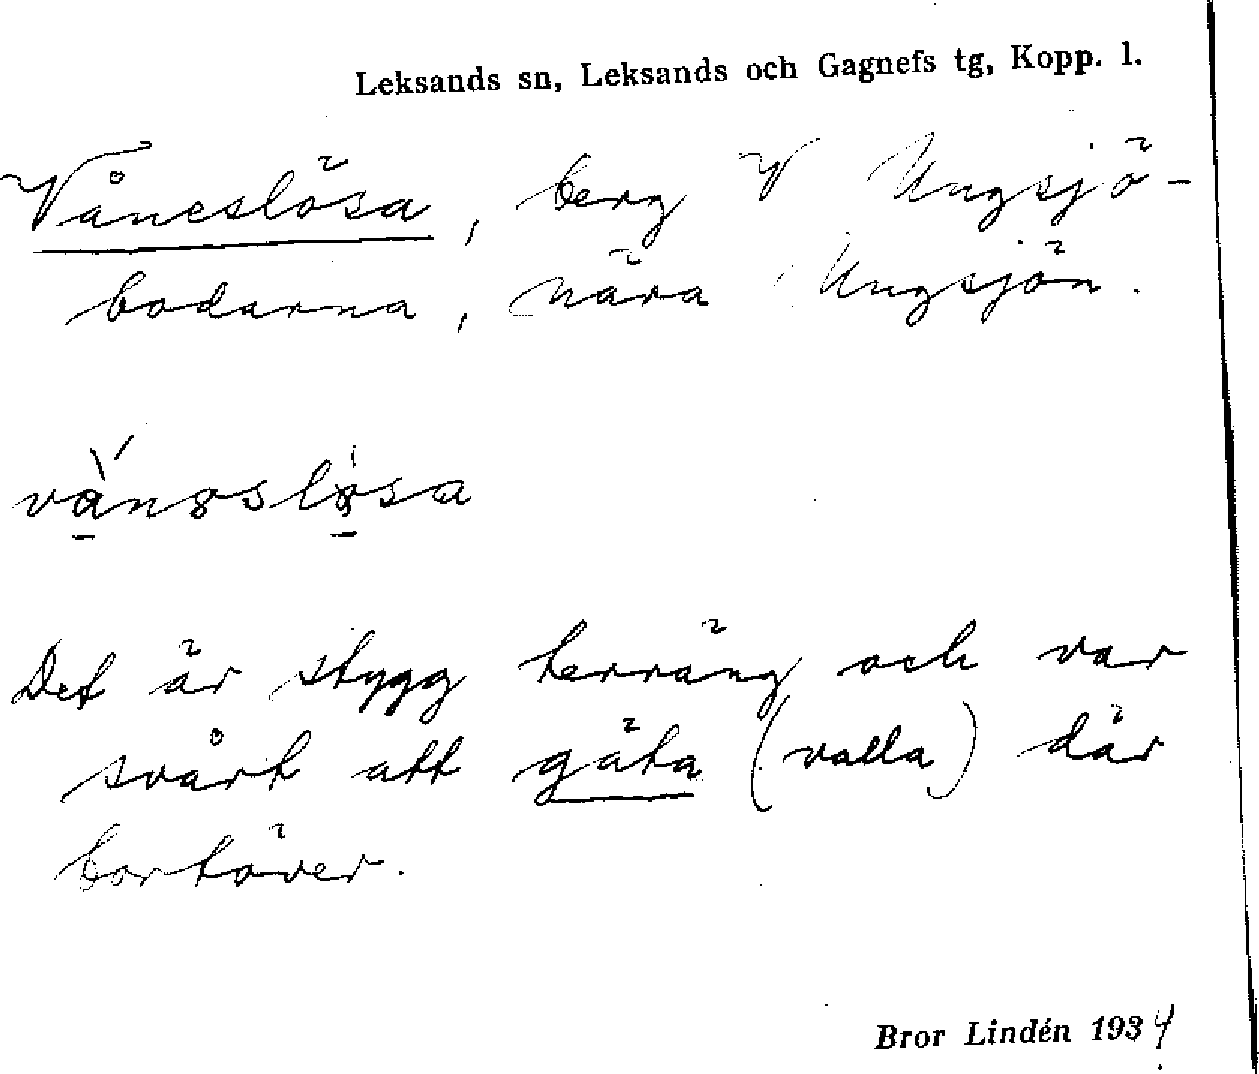 Leksands sn, Leksands och Gagnefs tg, Kopp. l.
Våneslösa, berg V Ungsjö-
bodarna, nära Ungsjön.
vànəslösa
Det är stygg terräng och var
svårt att gäta (valla) där
bortöver.
Bror Lindén 1934